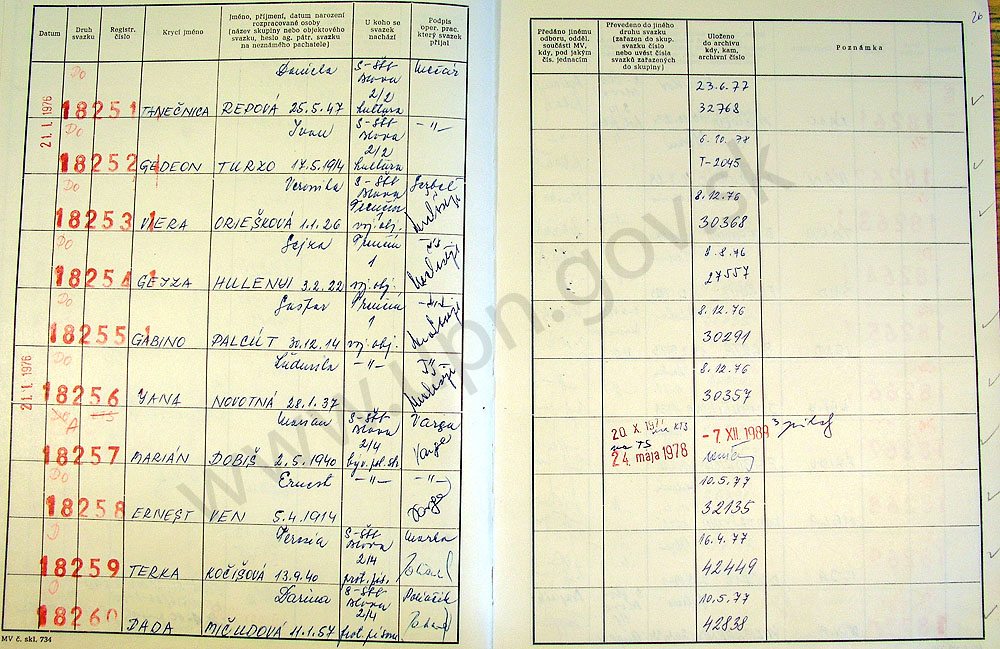 26
Datum
Druh svazku
Registr. číslo
Krycí jméno
Jméno, příjmení, datum narození rozpracované osoby (název skupiny nebo objektového svazku, heslo ag. pátr. svazku na neznámého pachatele)
U koho se svazek nachází
Podpis oper. prac. který svazek přijal
Předáno jinému odboru, odděl. součásti MV, kdy, pod jakým čís. jednacím
Převedeno do jiného druhu svazku (zařazen do skup. svazku číslo nebo uvést čísla svazků zařazených do skupiny)
Uloženo do archivu kdy, kam, archivní číslo
Poznámka
21. I. 1976
Do
Daniela
S-ŠtB
Blava
2/2
23.6.77
18251
TANEČNICA
REPOVÁ 25.5.47
kultúra
32768
Do
Ivan
S-ŠtB
Blava
2/2
-"-
6.10.78
18252
GEDEON
TURZO 17.5.1914
kultúra
T-2045
Do
Veronika
S-ŠtB
Blava
Trenčín
8.12.76
18253
VIERA
ORIEŠKOVÁ 1.1.26
voj. obj.
30368
Do
Gejza
Trenčín
1
8.8.76
18254
GEJZA
HULLENYI 3.2.22
voj. obj.
27557
Do
Gašpar
Trenčín
1
8.12.76
18255
GABINO
PALCÚT 30.12.14
voj. obj.
30291
21. I. 1976
Do
Ľudmila
-"-
8.12.76
18256
JANA
NOVOTNÁ 28.1.37
30357
A
Marián
S-ŠtB
Blava
2/4
Varga
20. X. 1977
na TS
24. mája 1978
-7 XII. 1989
3 príloh
18257
MARIÁN
DOBIŠ 2.5.1940
býv. pol. str.
Varga
Do
Ernest
-"-
-"-
10.5.77
18258
ERNEST
VEN 5.4.1914
Varga
32135
D
Terézia
S-ŠtB
Blava
2/4
16.4.77
18259
TERKA
KOČIŠOVÁ 13.9.40
prot. pís.
42449
Darina
S-ŠtB
Blava
2/4
10.5.77
18260
DADA
MIČUDOVÁ 11.1.57
42838
MV č. skl. 734
www.upn.gov.sk